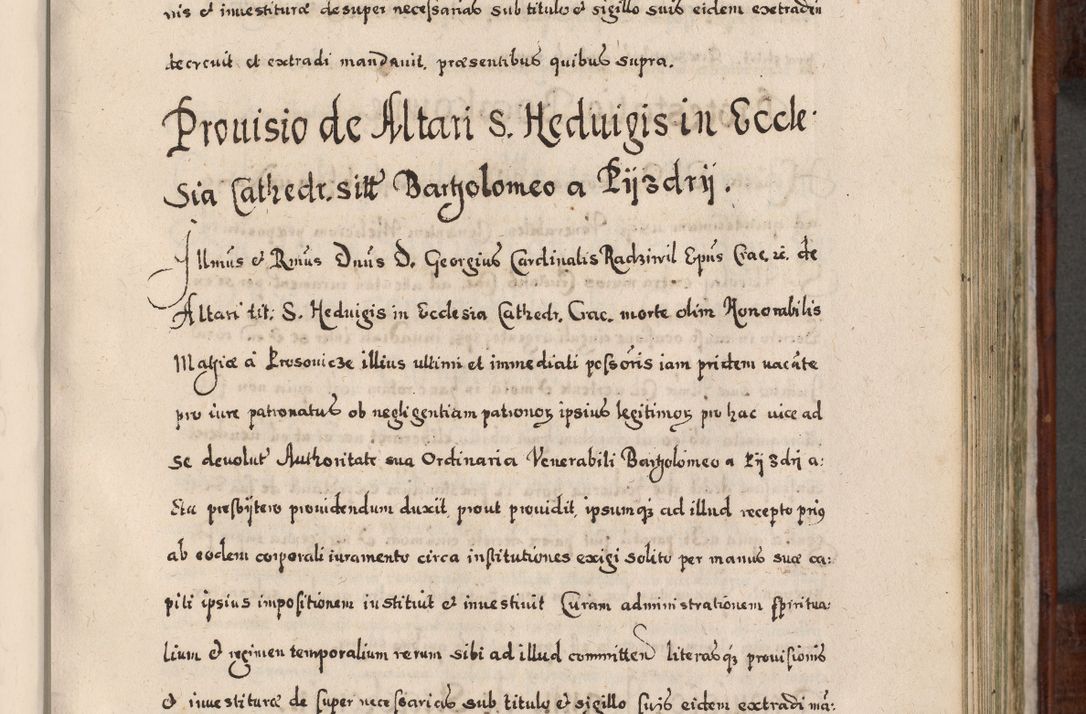 nis et inuestituræ desuper necessarias sub titulo et sigillo suis eidem extradiu
decreuit et extradi mandauit, præsentibus quibus supra.
Prouisio de Altari S. Heduigis in Eccle:
sia Cathedr. sitt Bartholomeo a Pijzdrij.
Illmus et Rmus Dnus D. Georgius Cardinalis Radziwil Epus Crac. etc. de
Altari tit: S. Heduigis in Ecclesia Cathedr. Crac. morte olim Honorabilis
Mathiæ a Prosouicze illius ultimi et immediati possoris iam pridem vacãte
pro iure patronatus ob negligentiam patronoꝝ ipsius legitimoꝝ pro hac vice ad
se deuolut Authoritate sua Ordinaria Venerabili Bartholomeo a Pijzdri a:
presbytero prouidendum duxit, prout prouidit, ipsumqꝫ ad illud recepto priꝯ
ab eodem corporali iuramento circa institutiones exigi solito per manus suæ ca:
piti ipsius impositionem instituit et inuestiuit Curam administrationem spiritua:
lium et regimen temporalium rerum sibi ad illud committen literasqꝫ prouisionis
et inuestituræ de super necessarias sub titulo et sigillo suis eidem extradi mã: